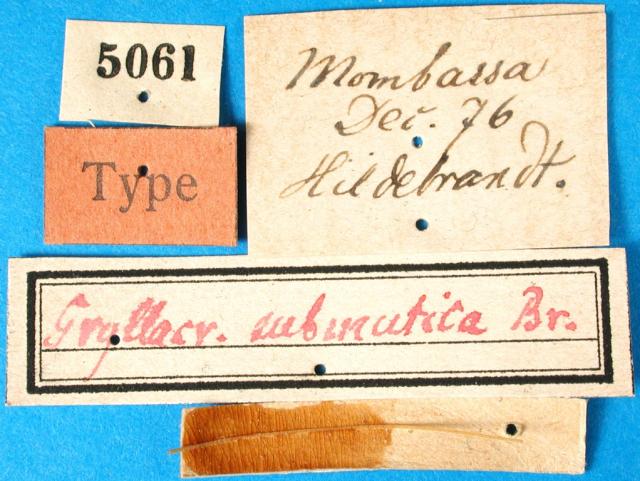 5061
Type
Mombassa
Dec. 76
Hildebrandt.
Gryllacr. submutica Br.